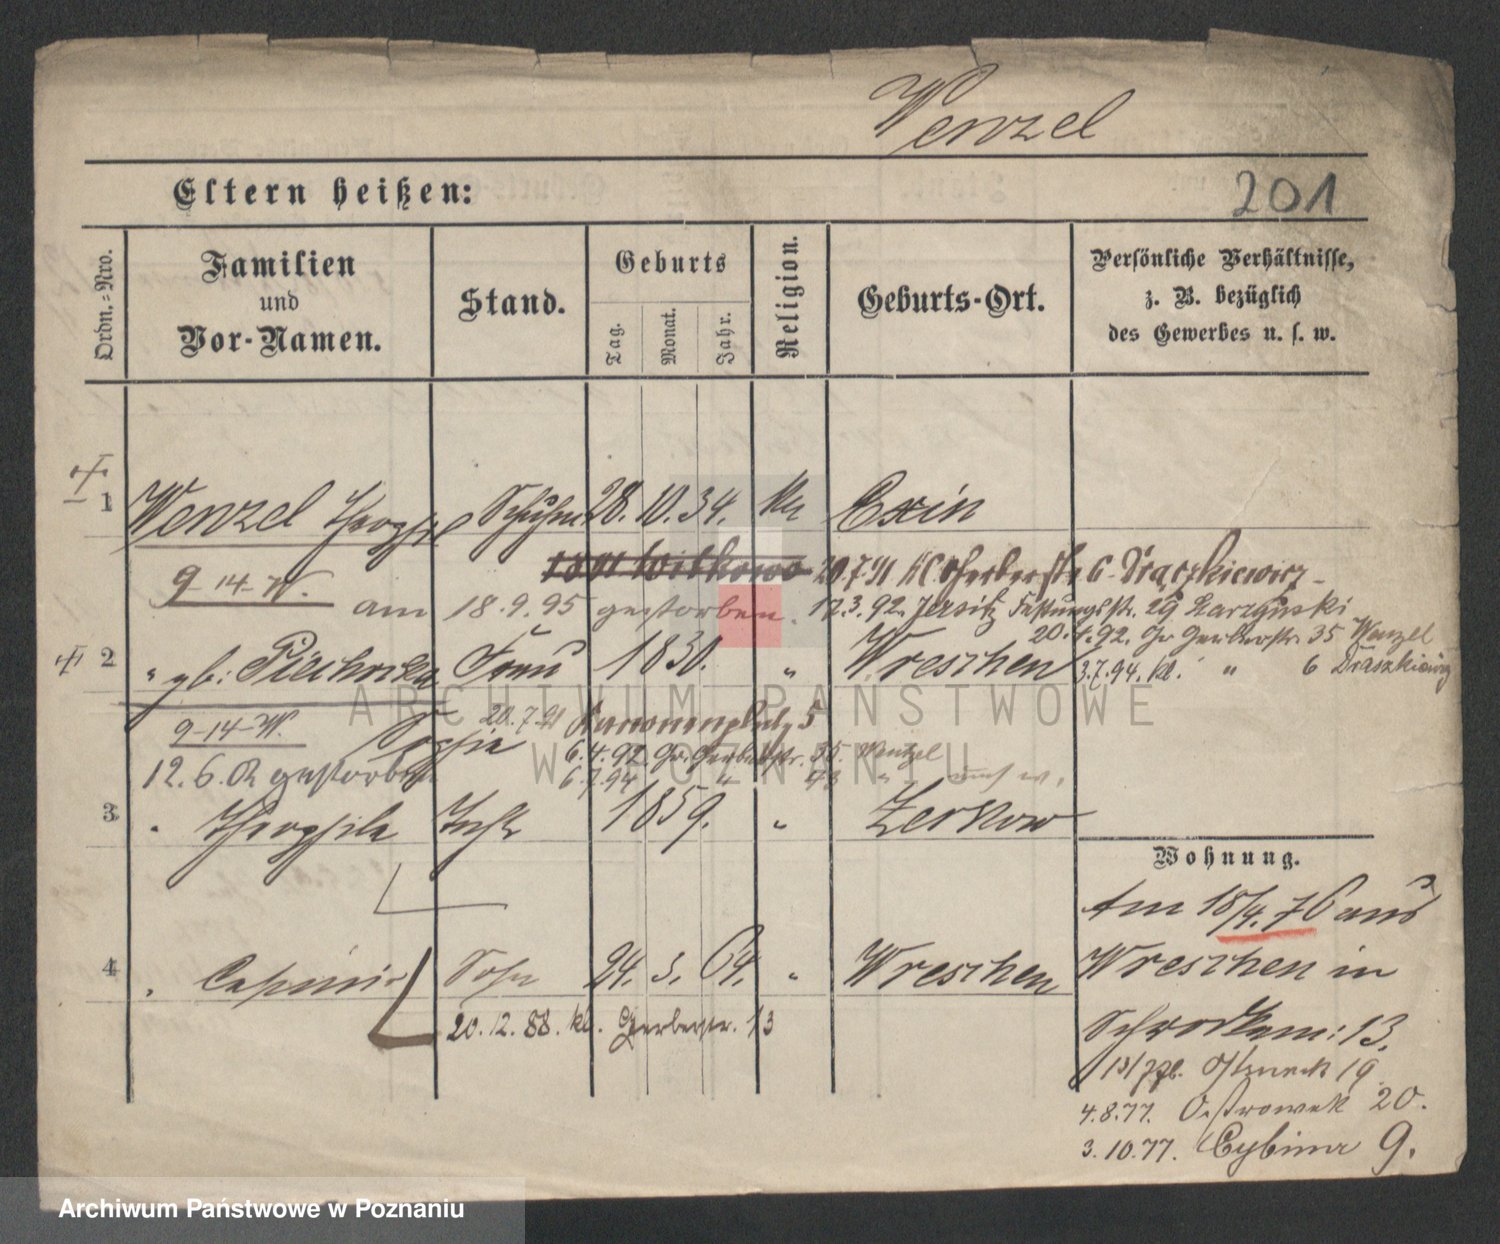 Wenzel
Eltern heißen:
201
Ordn.-Nro.
Familien
und
Vor-Namen.
Stand.
Geburts
Tag.
Monat.
Jahr.
Religion.
Geburts-Ort.
Persönliche Verhältnisse,
z. B. bezüglich
des Gewerbes u. s. w.
1 Wenzel 28. 10. 34. Exin
Witkowo 20.7.91
9-14-W.
am 18.9.95 gestorben. 12.3.92. Jersitz Festungsstr. 29
20.4.92. Gr Gerberstr. 35 Wenzel
2 Frau 1830. " Wreschen 3.7.94. Kl. " 6
9-14-W. 20.7.91 Kanonenplatz 5
6.4.92 Gr. Gerberstr. 35. Wenzel
12.6.02 gestorben 6.7.94 "
3 1859. " Zerkow
Wohnung.
Am 18/4.76 aus
4 Sohn 24. 3. 64. " Wreschen
Wreschen in
20.12.88. Kl. Gerberstr. 13
Schrodkam: 13.
19
4.8.77. Ostrowek 20.
3.10.77. Cybina 9.
ARCHIWUM PAŃSTWOWE
W POZNANIU
Archiwum Państwowe w Poznaniu